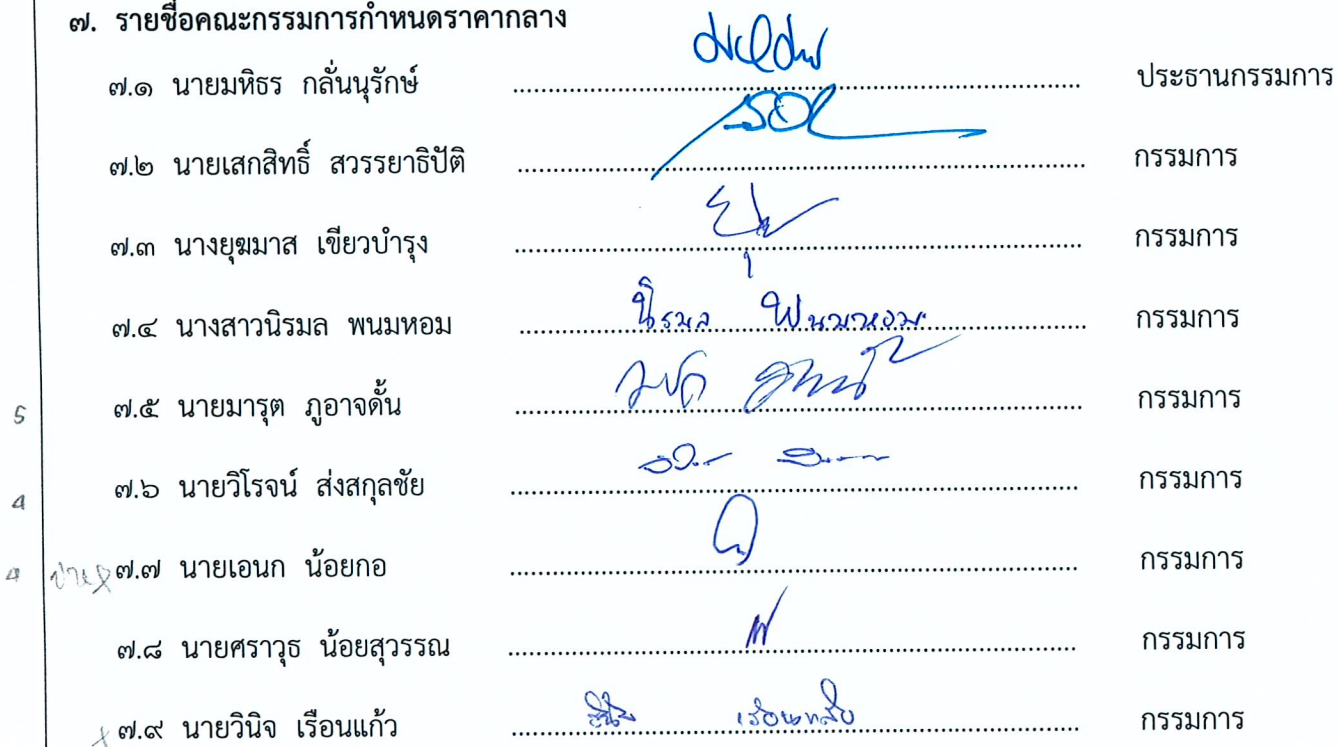 ๗. รายชื่อคณะกรรมการกำหนดราคากลาง
๗.๑ นายมหิธร กลั่นนุรักษ์ ประธานกรรมการ
๗.๒ นายเสกสิทธิ์ สวรรยาธิปัติ กรรมการ
๗.๓ นางยุฆมาส เขียวบำรุง กรรมการ
๗.๔ นางสาวนิรมล พนมหอม นิรมล พนมหอม กรรมการ
5 ๗.๕ นายมารุต ภูอาจดั้น กรรมการ
4 ๗.๖ นายวิโรจน์ ส่งสกุลชัย กรรมการ
4 ๗.๗ นายเอนก น้อยกอ กรรมการ
๗.๘ นายศราวุธ น้อยสุวรรณ กรรมการ
๗.๙ นายวินิจ เรือนแก้ว กรรมการ